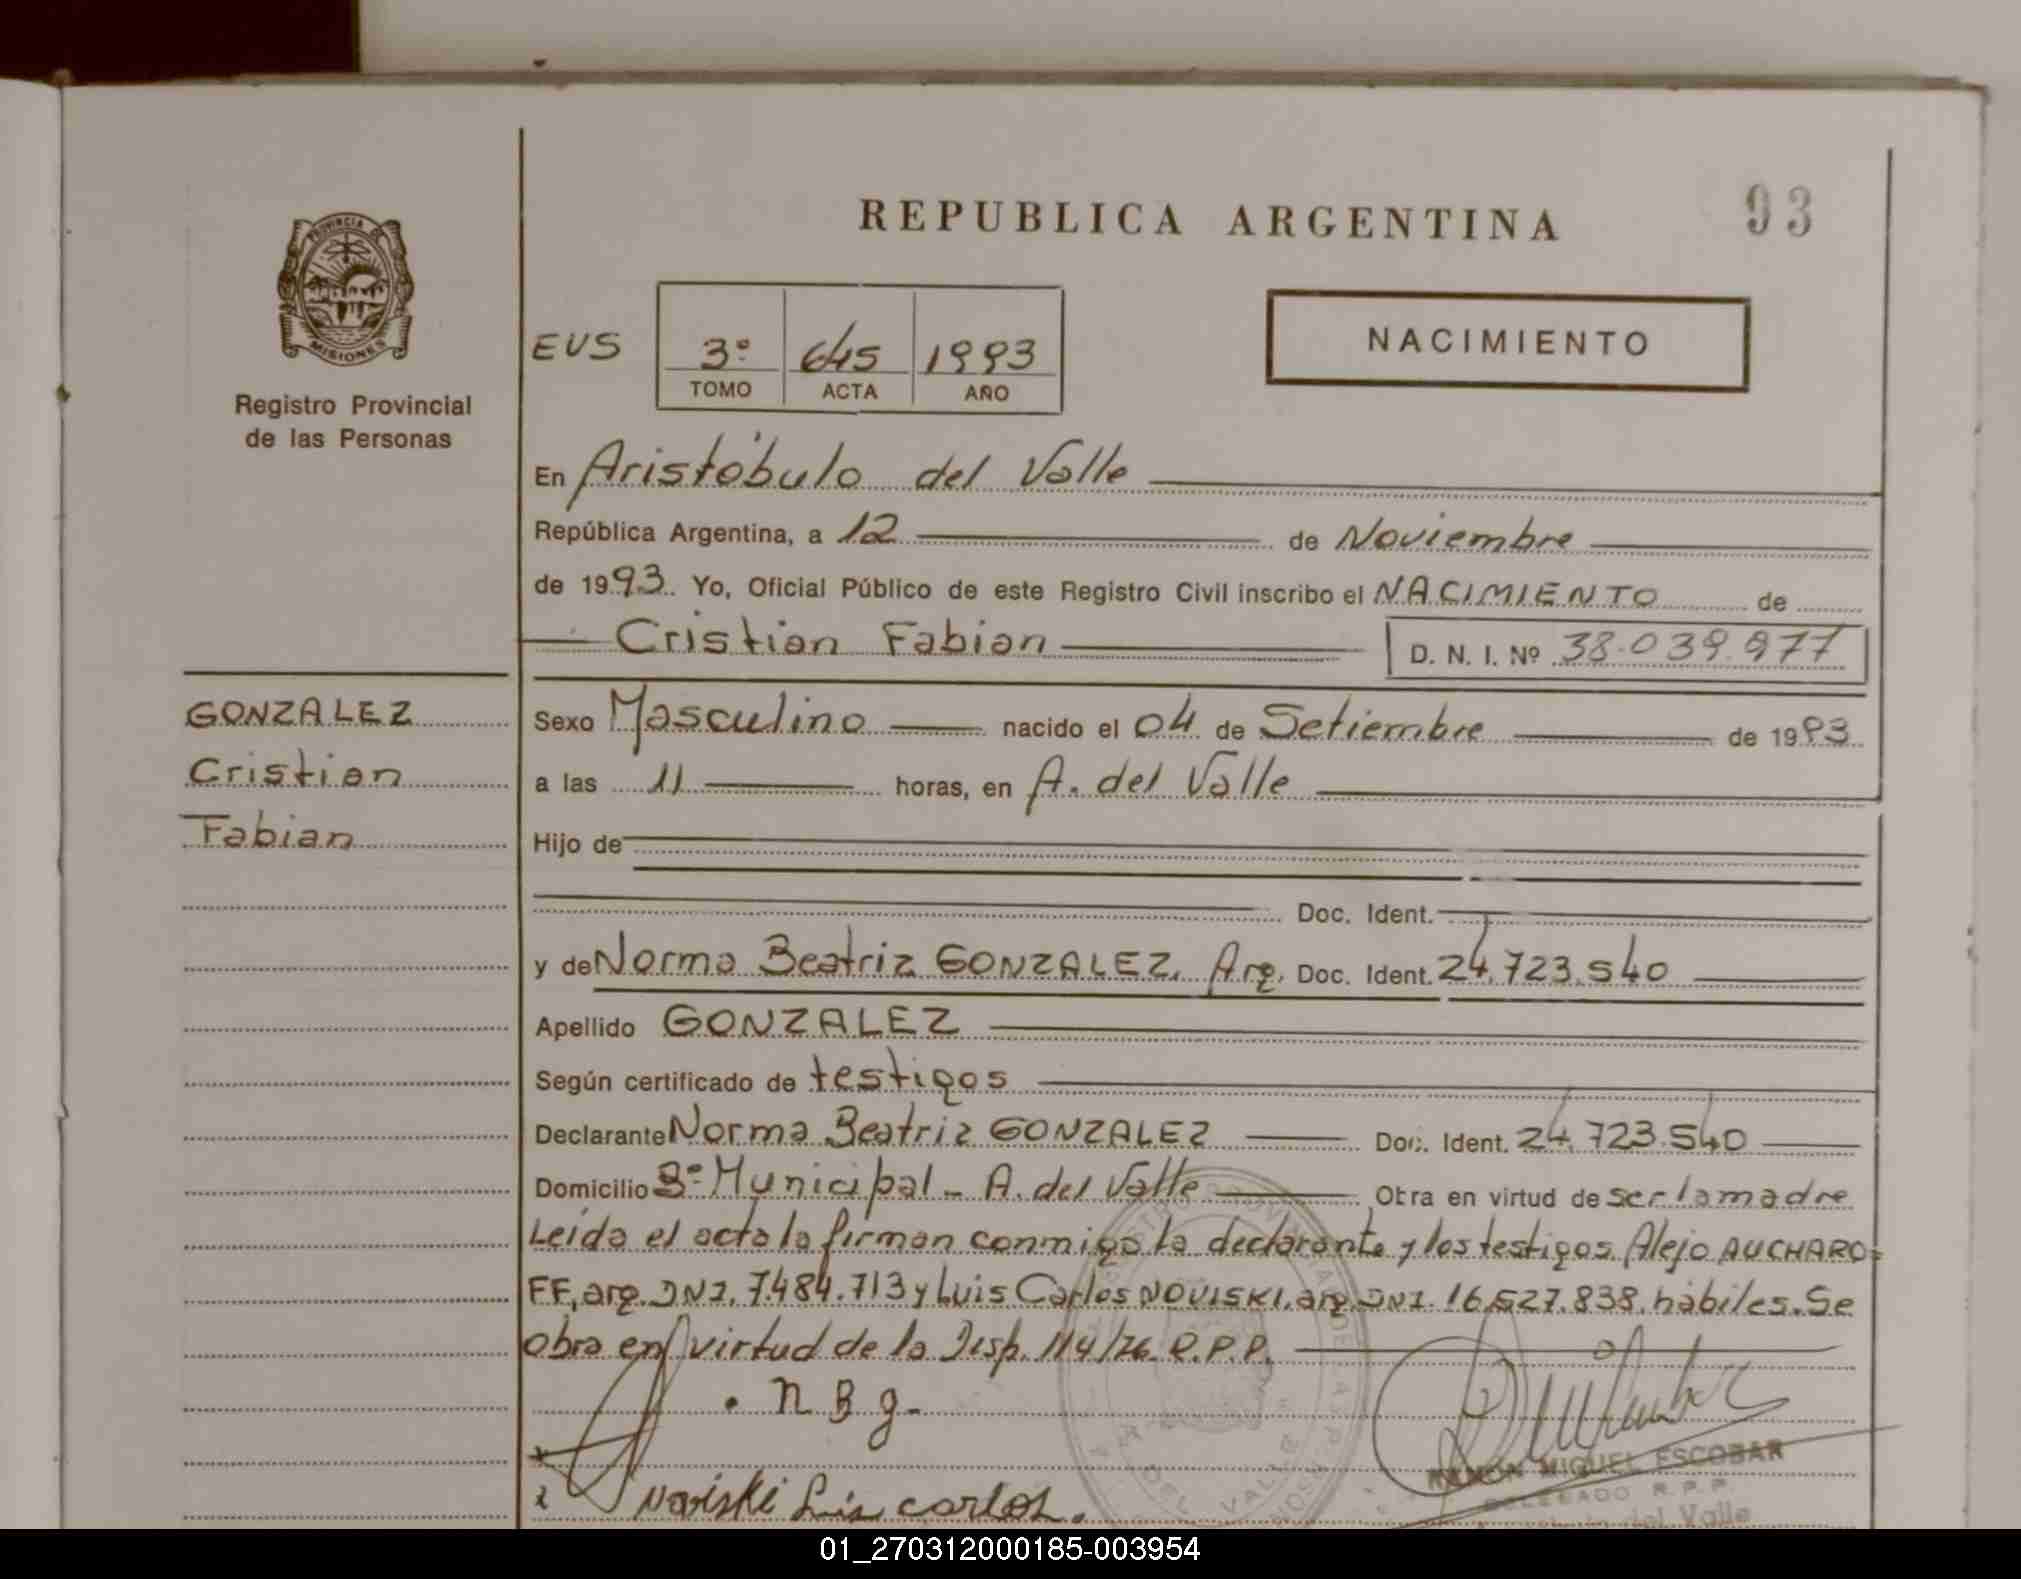 REPUBLICA ARGENTINA
93
PROVINCIA DE
MISIONES
Registro Provincial
de las Personas
EUS
3º 645 1993
TOMO ACTA AÑO
NACIMIENTO
En Aristóbulo del Valle
República Argentina, a 12 de Noviembre
de 1993. Yo, Oficial Público de este Registro Civil inscribo el NACIMIENTO de
Cristian Fabian D. N. I. Nº 38.039.977
GONZALEZ
Cristian
Fabian
Sexo Masculino nacido el 04 de Setiembre de 1993
a las 11 horas, en A. del Valle
Hijo de
Doc. Ident.
y de Norma Beatriz GONZALEZ. Arg. Doc. Ident. 24.723.540
Apellido GONZALEZ
Según certificado de testigos
Declarante Norma Beatriz GONZALEZ Doc. Ident. 24.723.540
Domicilio Bº Municipal - A. del Valle Obra en virtud de ser la madre
Leída el acta la firman conmigo la declarante y los testigos Alejo AUCHARO=
FF, arg. DNI. 7.484.713 y Luis Carlos NOVISKI, arg. DNI. 16.527.838, hábiles. Se
obra en virtud de la Disp. 114/76 R.P.P.
. N B g -
Noviski Luis carlos.
RAMON MIGUEL ESCOBAR
DELEGADO R.P.P.
del Valle
DEL VALLE
01_270312000185-003954